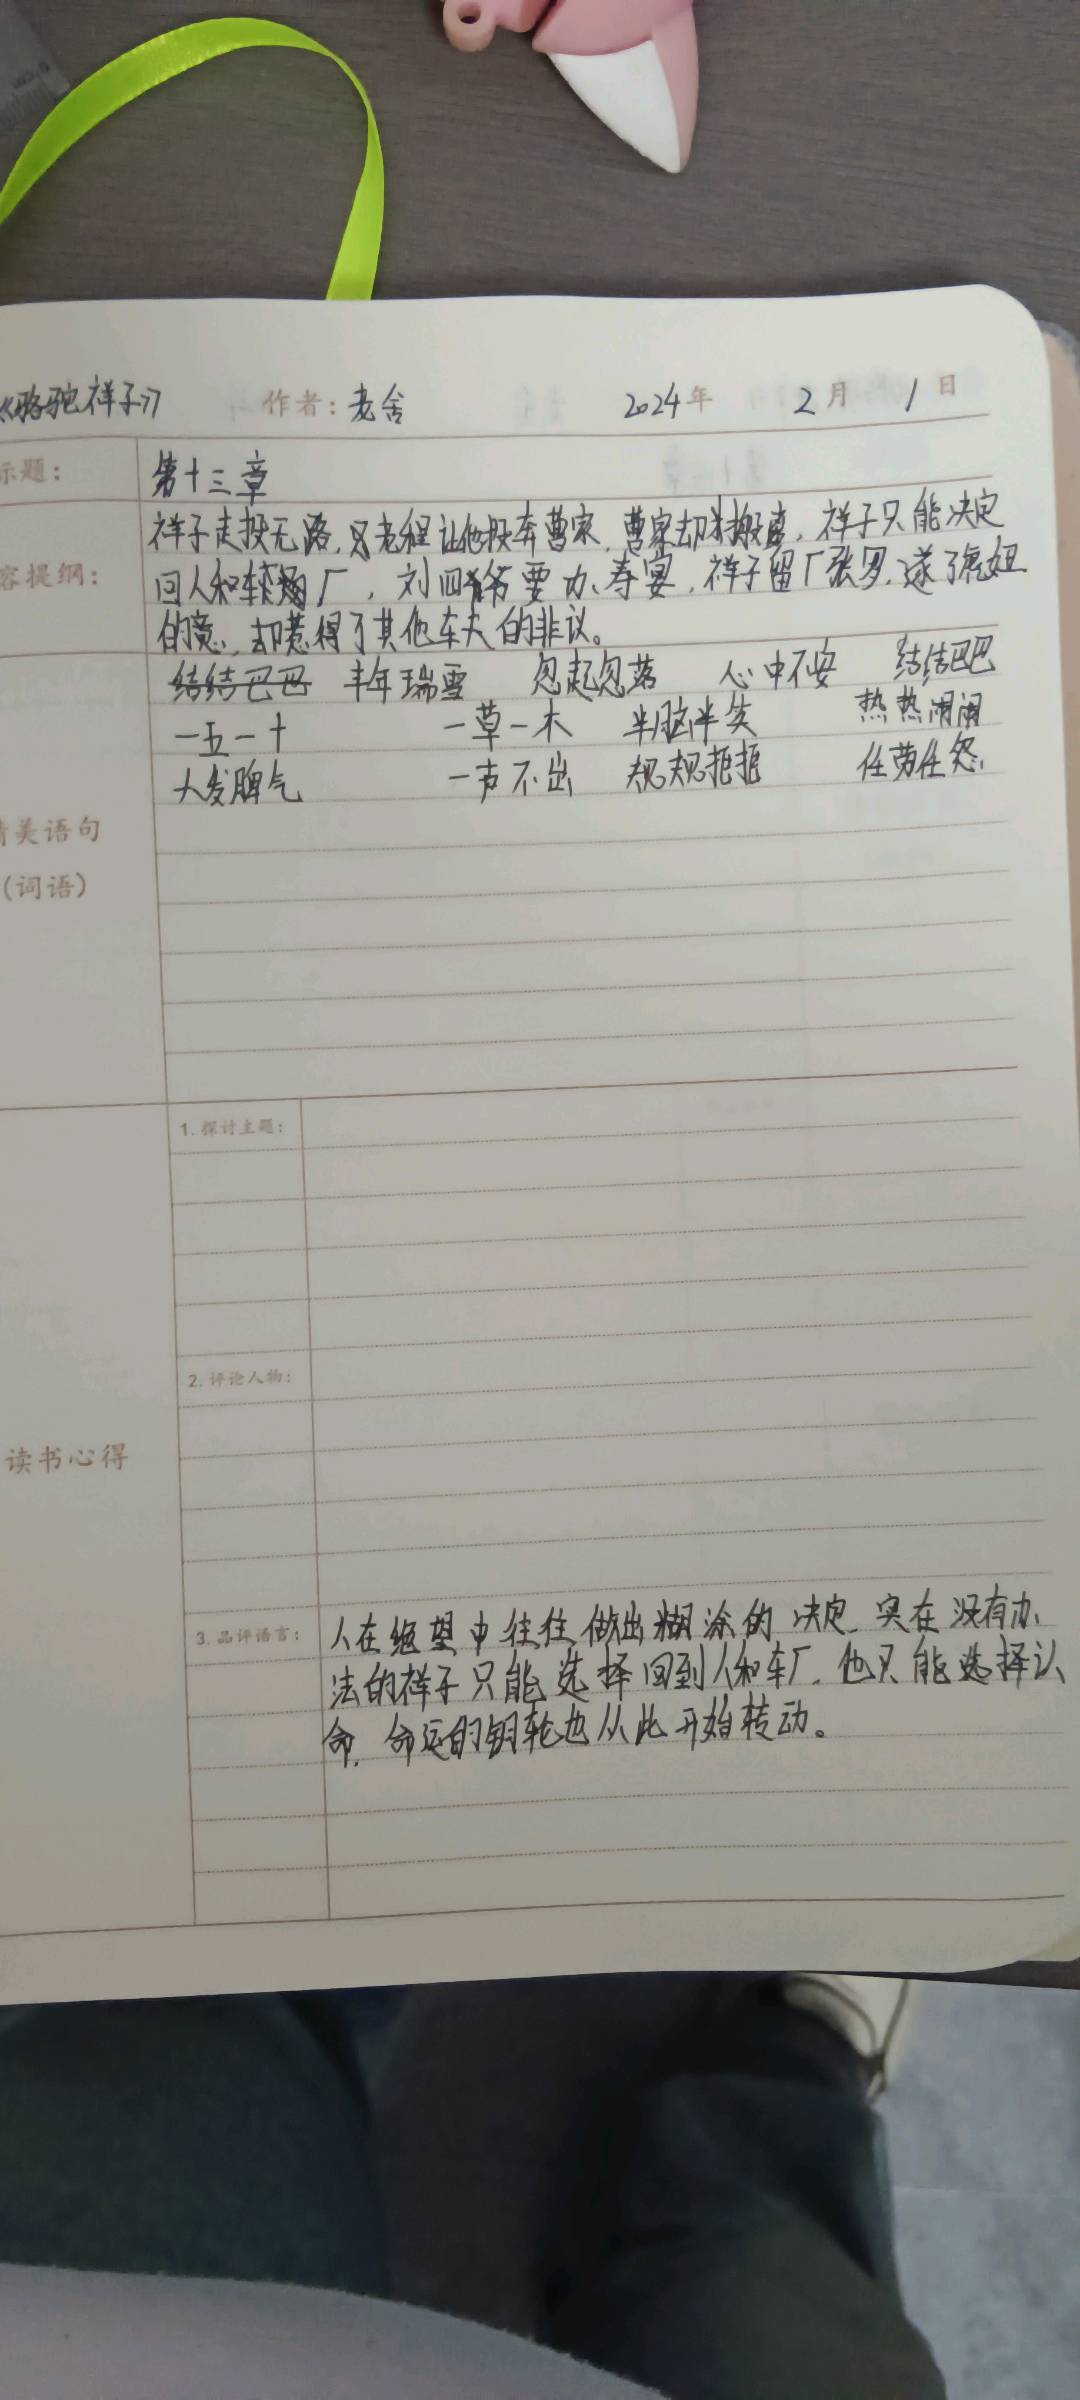 《骆驼祥子》 作者：老舍 2024年 2月 1日
标题： 第十三章
祥子走投无路，老程让他投奔曹家，曹家却搬，祥子只能决定
容提纲： 回人和车厂，刘四爷要办寿宴，祥子留厂张罗，遂了虎妞
的意，却惹得了其他车夫的非议。
结结巴巴 丰年瑞雪 忽起忽落 心中不安 结结巴巴
一五一十 一草一木 半恼半笑 热热闹闹
大发脾气 一声不出 规规矩矩 任劳任怨
精美语句
（词语）
1. 探讨主题：
2. 评论人物：
读书心得
3. 品评语言： 人在绝望中往往做出糊涂的决定，实在没有办
法的祥子只能选择回到人和车厂，他只能选择认
命，命运的轮也从此开始转动。